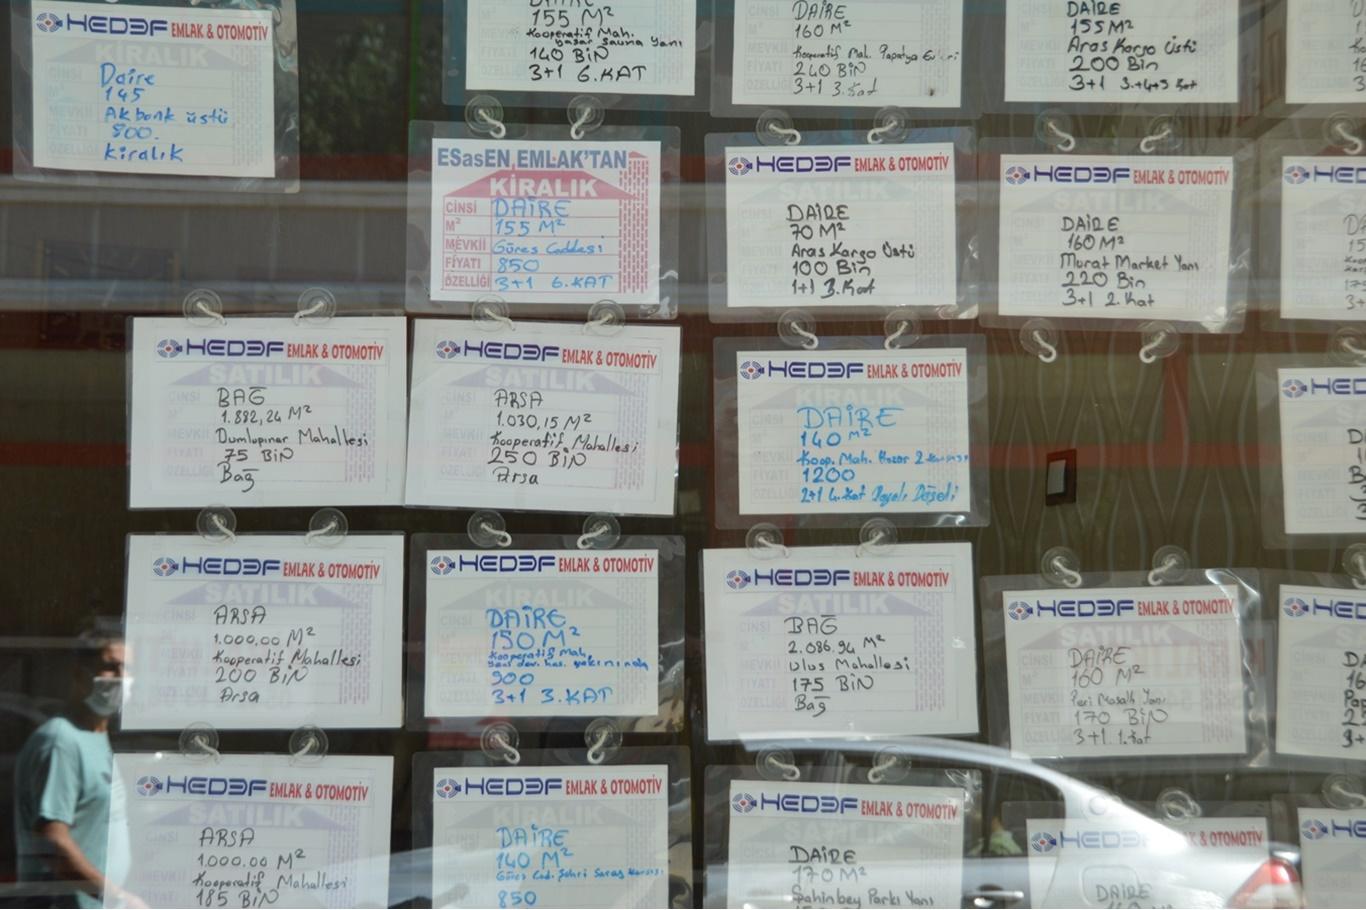 HEDEF EMLAK & OTOMOTİV
KİRALIK
Daire
145
Akbank üstü
800.
kiralık
DAİRE
155 M²
Kooperatif Mah.
Yaşar Sauna Yanı
140 BİN
3+1 6.KAT
DAİRE
160 M²
Kooperatif Mah. Papatya Evleri
240 BİN
3+1 3.Kat
DAİRE
155 M²
Aras Kargo Üstü
200 Bin
3+1 3.+4+5 Kat
ESasEN EMLAK'TAN
KİRALIK
CİNSİ DAİRE
M² 155 M²
MEVKİİ Güreş Caddesi
FİYATI 850
ÖZELLİĞİ 3+1 6.KAT
HEDEF EMLAK & OTOMOTİV
SATILIK
DAİRE
70 M²
Aras Kargo Üstü
100 Bin
1+1 3.Kat
HEDEF EMLAK & OTOMOTİV
SATILIK
DAİRE
160 M²
Murat Market Yanı
220 Bin
3+1 2.Kat
HED
HEDEF EMLAK & OTOMOTİV
SATILIK
BAĞ
1.882,24 M²
Dumlupınar Mahallesi
75 BİN
Bağ
HEDEF EMLAK & OTOMOTİV
SATILIK
ARSA
1.030,15 M²
Kooperatif Mahallesi
250 BİN
Arsa
HEDEF EMLAK & OTOMOTİV
KİRALIK
DAİRE
140 M²
Koop. Mah. Hazar 2
1200
2+1 4.Kat Dayalı Döşeli
HED
HEDEF EMLAK & OTOMOTİV
SATILIK
ARSA
1.000.00 M²
Kooperatif Mahallesi
200 BİN
Arsa
HEDEF EMLAK & OTOMOTİV
KİRALIK
DAİRE
150 M²
Kooperatif Mah.
Yeni dev. has. yakınında
900
3+1 3.KAT
HEDEF EMLAK & OTOMOTİV
SATILIK
BAĞ
2.086.94 M²
Ulus Mahallesi
175 BİN
Bağ
HEDEF EMLAK & OTOMOTİV
SATILIK
DAİRE
160 M²
Peri Masalı Yanı
170 BİN
3+1. 1.Kat
HED
HEDEF EMLAK & OTOMOTİV
SATILIK
ARSA
1.000.00 M²
Kooperatif Mahallesi
185 BİN
HEDEF EMLAK & OTOMOTİV
KİRALIK
DAİRE
140 M²
Güreş Cad. Şehri Saray Karşısı
850
HEDEF EMLAK & OTOMOTİV
SATILIK
DAİRE
170 M²
Şahinbey Parkı Yanı
HEDEF EMLAK & OTOMOTİV
DAİRE
HE